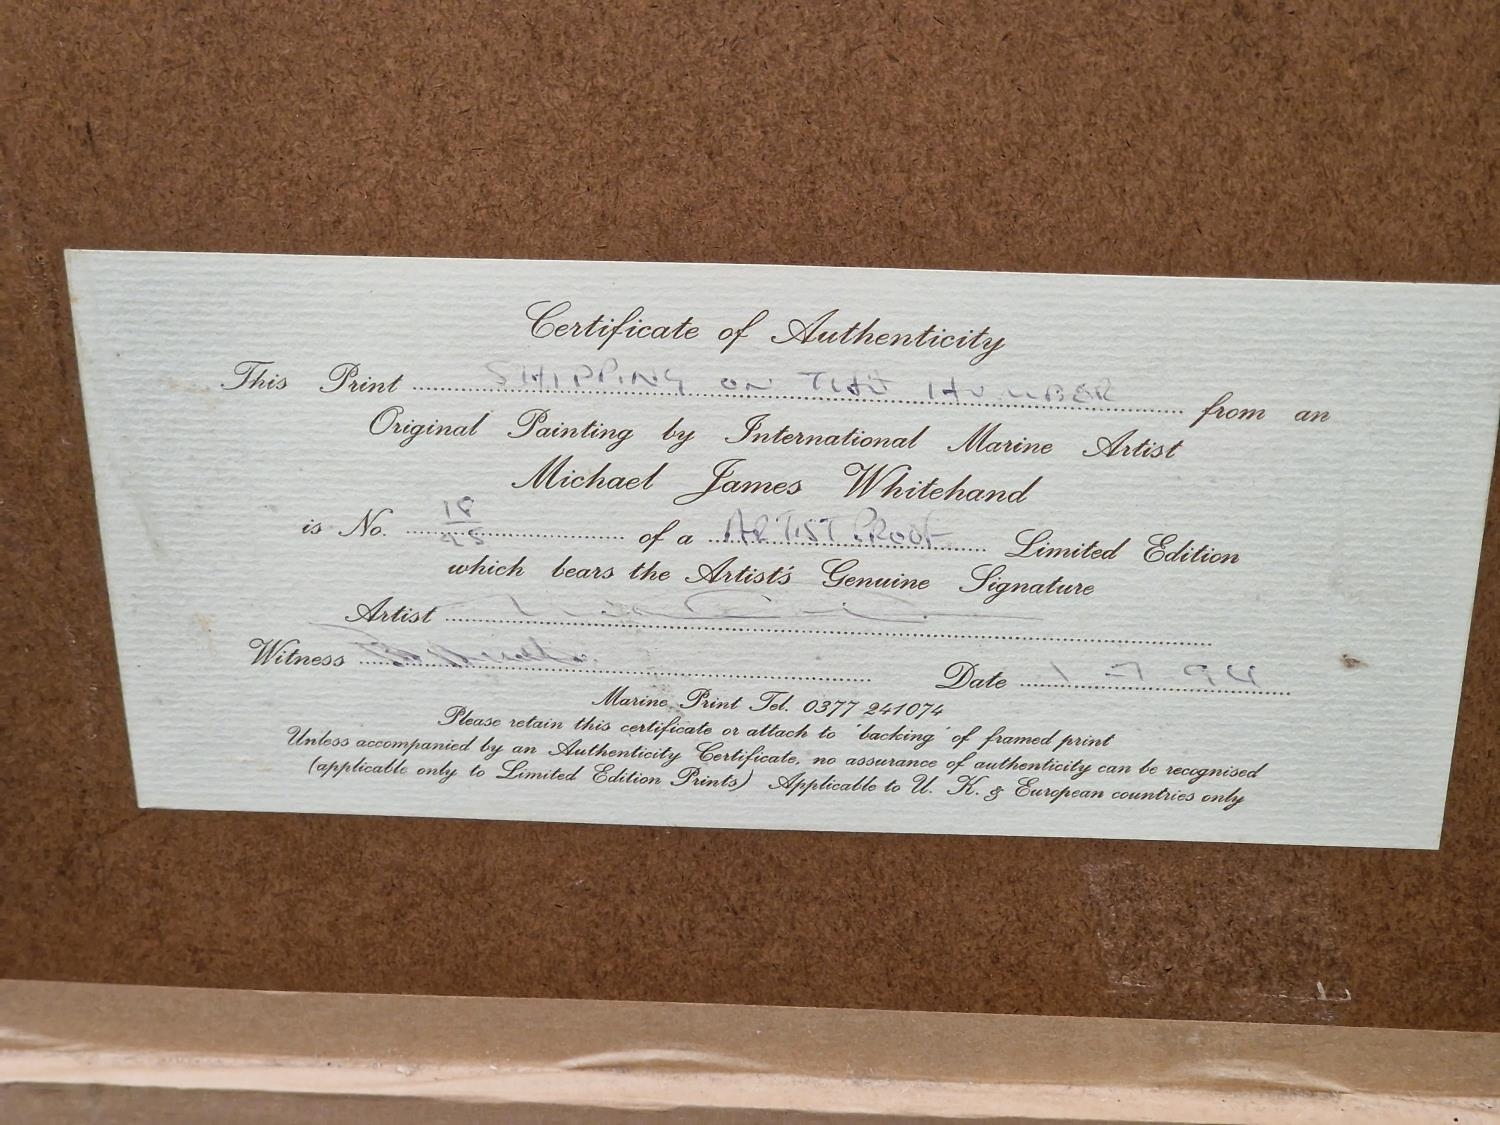 Certificate of Authenticity
This Print SHIPPING ON THE HUMBER from an
Original Painting by International Marine Artist
Michael James Whitehand
is No. 18 of a ARTIST PROOF Limited Edition
which bears the Artist's Genuine Signature
Artist
Witness Date 1-7 94
Marine Print Tel. 0377 241074
Please retain this certificate or attach to 'backing' of framed print
Unless accompanied by an Authenticity Certificate, no assurance of authenticity can be recognised
(applicable only to Limited Edition Prints) Applicable to U. K. & European countries only